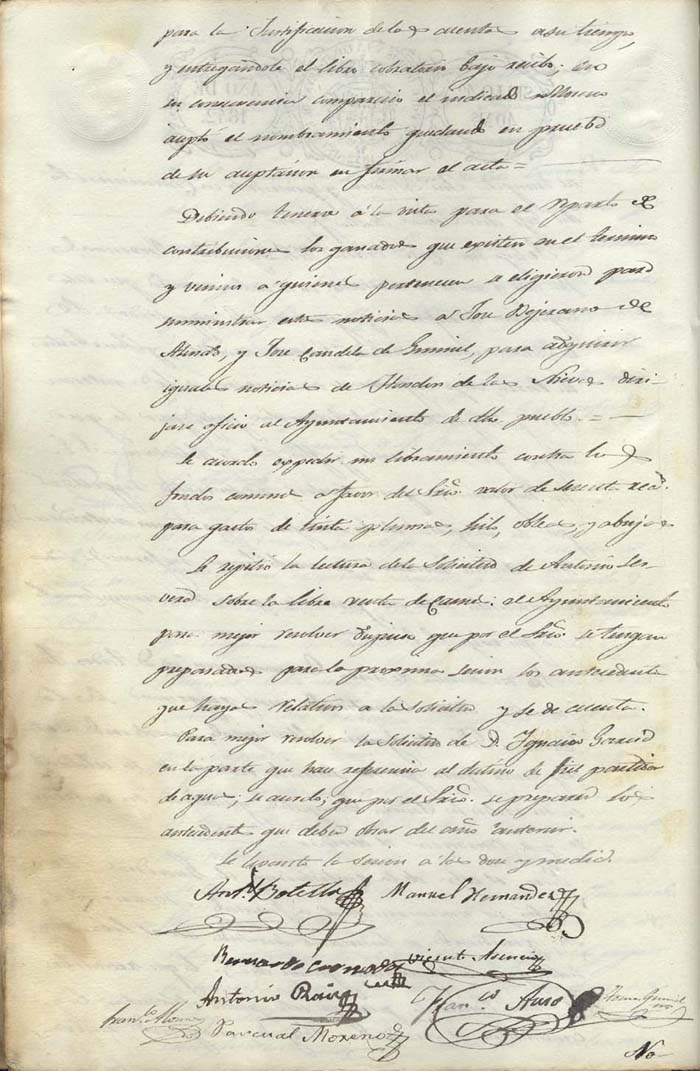 para la Justificacion de la cuenta a su tiempo,
y entregandole el libro cobratorio bajo recibo; En
su consecuencia comparecio el indicado Moreno
aceptó el nombramiento quedando en prueba
de su aceptacion en firmar el acta =
Debiendo tenerse á la vista para el reparto de
contribuciones los ganados que existen en el termino
y vecinos a quienes pertenecen se eligieron para
suministrar esta noticia a Jose Bejerano de
y Jose Candela de para adquirir
iguales noticias de Hondon de las Nieves diri-
jase oficio al Ayuntamiento de dho pueblo. =
Se acordo expedir un libramiento contra los
fondos comunes a favor del Srio. valor de sesenta rs.
para gastos de tinta plumas, hilo, obleas, y abujas
Se repitió la lectura de la Solicitud de Antonio Ser-
vera sobre la libre venta de Carne: el Ayuntamiento
para mejor resolver que por el Srio. se tengan
preparados para la proxima sesion los antecedentes
que haya relativos a la solicitud y se de cuenta.
Para mejor resolver la Solicitud de D. Ignacio
en la parte que hace referencia al destino de partidas
de agua; se acordo; que por el Srio. se preparen los
antecedentes que deben obrar del año anterior.
Se levanto la sesion a las doce y media.
Anto. Botella Manuel Hernandez
Bernardo Vicente Asencio
Antonio Franco. Auso
Franco. Pascual Moreno
No-